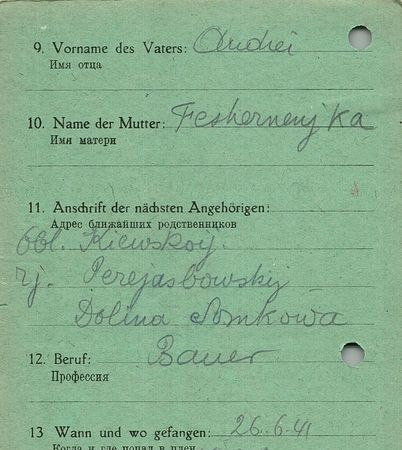 9. Vorname des Vaters: Andrei
Имя отца
10. Name der Mutter: Feshernenjka
Имя матери
11. Anschrift der nächsten Angehörigen:
Адрес ближайших родственников
obl. Kiewskoj.
rj. Perejasbowskij
Dolina Somkowa
12. Beruf: Bauer
Профессия
13 Wann und wo gefangen: 26.6.41
Когда и где попал в плен